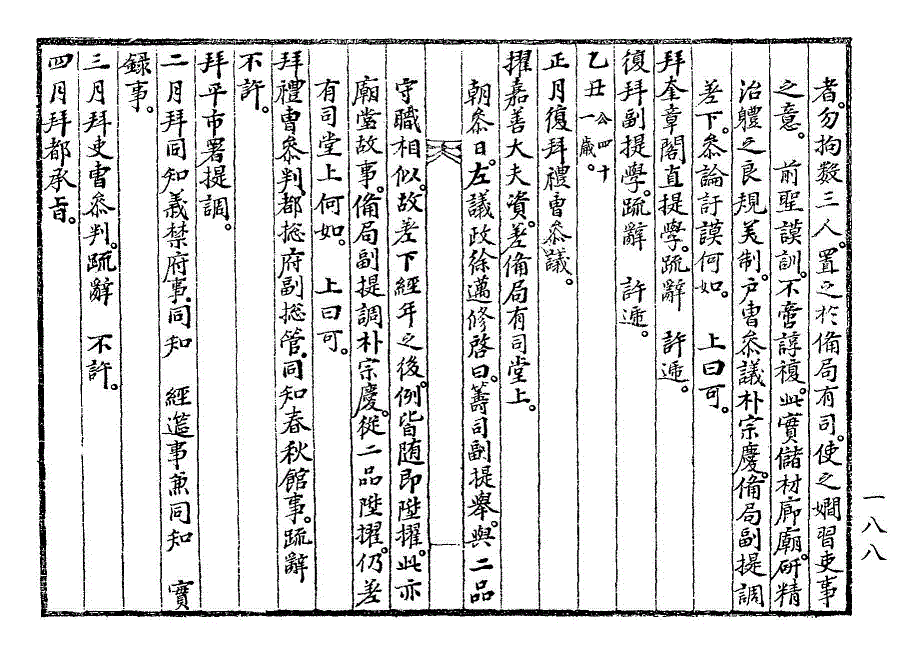 者。勿拘数三人。置之於備局有司。使之嫺習吏事
之意。 前聖謨訓。不啻諄複。此實儲材廊廟。研精
治體之良規美制。戶曹叅議朴宗慶。備局副提調
差下。叅論訏謨何如。 上曰可。
拜奎章閣直提學。疏辭 許遞。
復拜副提學。疏辭 許遞。
乙丑公四十一歲。
正月復拜禮曹叅議。
擢嘉善大夫資。差備局有司堂上。
朝叅日。左議政徐邁修啓曰。籌司副提擧。與二品
守職相似。故差下經年之後。例皆随即陞擢。此亦
廟堂故事。備局副提調朴宗慶。從二品陞擢。仍差
有司堂上何如。 上曰可。
拜禮曹叅判都捴府副捴管。同知春秋館事。疏辭
不許。
拜平市署提調。
二月拜同知義禁府事。同知 經筵事兼同知 實
録事。
三月拜吏曹叅判。疏辭 不許。
四月拜都承旨。
一八八